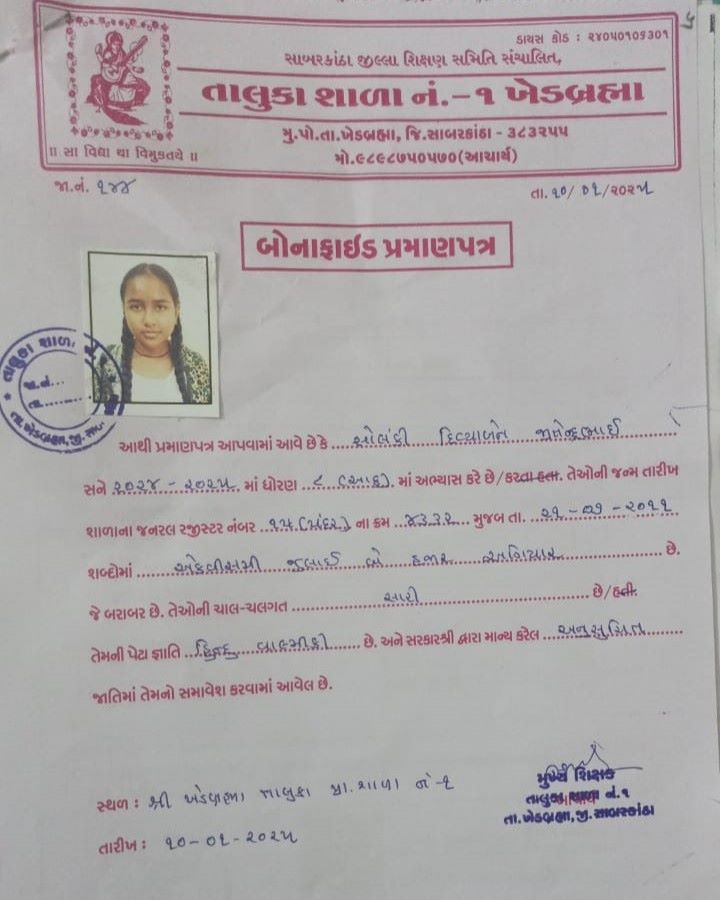 ડાયસ કોડ : ૨૪૦૫૦૧૦૬૩૦૧
સાબરકાંઠા જીલ્લા શિક્ષણ સમિતિ સંચાલિત,
તાલુકા શાળા નં.-૧ ખેડબ્રહ્મા
મુ.પો.તા.ખેડબ્રહ્મા, જિ.સાબરકાંઠા - ૩૮૩૨૫૫
મો.૯૮૯૮૭૫૦૫૭૦(આચાર્ય)
॥ સા વિદ્યા યા વિમુક્તયે ॥
જા.નં. ૧૪૪
તા. ૧૦/ ૦૧ /૨૦૨૫
બોનાફાઈડ પ્રમાણપત્ર
આથી પ્રમાણપત્ર આપવામાં આવે છે કે સોલંકી દિવ્યાબેન જીતેન્દ્રભાઈ
સને ૨૦૨૪ - ૨૦૨૫ માં ધોરણ ૮ (આઠ) માં અભ્યાસ કરે છે/કરતા હતા. તેઓની જન્મ તારીખ
શાળાના જનરલ રજીસ્ટર નંબર ૧૫ (મંદર) ના ક્રમ ૪૩૩૨ મુજબ તા. ૨૧ - ૦૭ - ૨૦૧૧
શબ્દોમાં એકવીસમી જુલાઈ બે હજાર અગિયાર છે.
જે બરાબર છે. તેઓની ચાલ-ચલગત સારી છે/હતી.
તેમની પેટા જ્ઞાતિ હિન્દુ વાલ્મીકી છે. અને સરકારશ્રી દ્વારા માન્ય કરેલ અનુસુચિત
જાતિમાં તેમનો સમાવેશ કરવામાં આવેલ છે.
સ્થળ : શ્રી ખેડબ્રહ્મા તાલુકા પ્રા. શાળા નં-૧
તારીખ : ૧૦-૦૧-૨૦૨૫
મુખ્ય શિક્ષક
તાલુકા શાળા નં.૧
આચાર્ય
તા.ખેડબ્રહ્મા,જી.સાબરકાંઠા